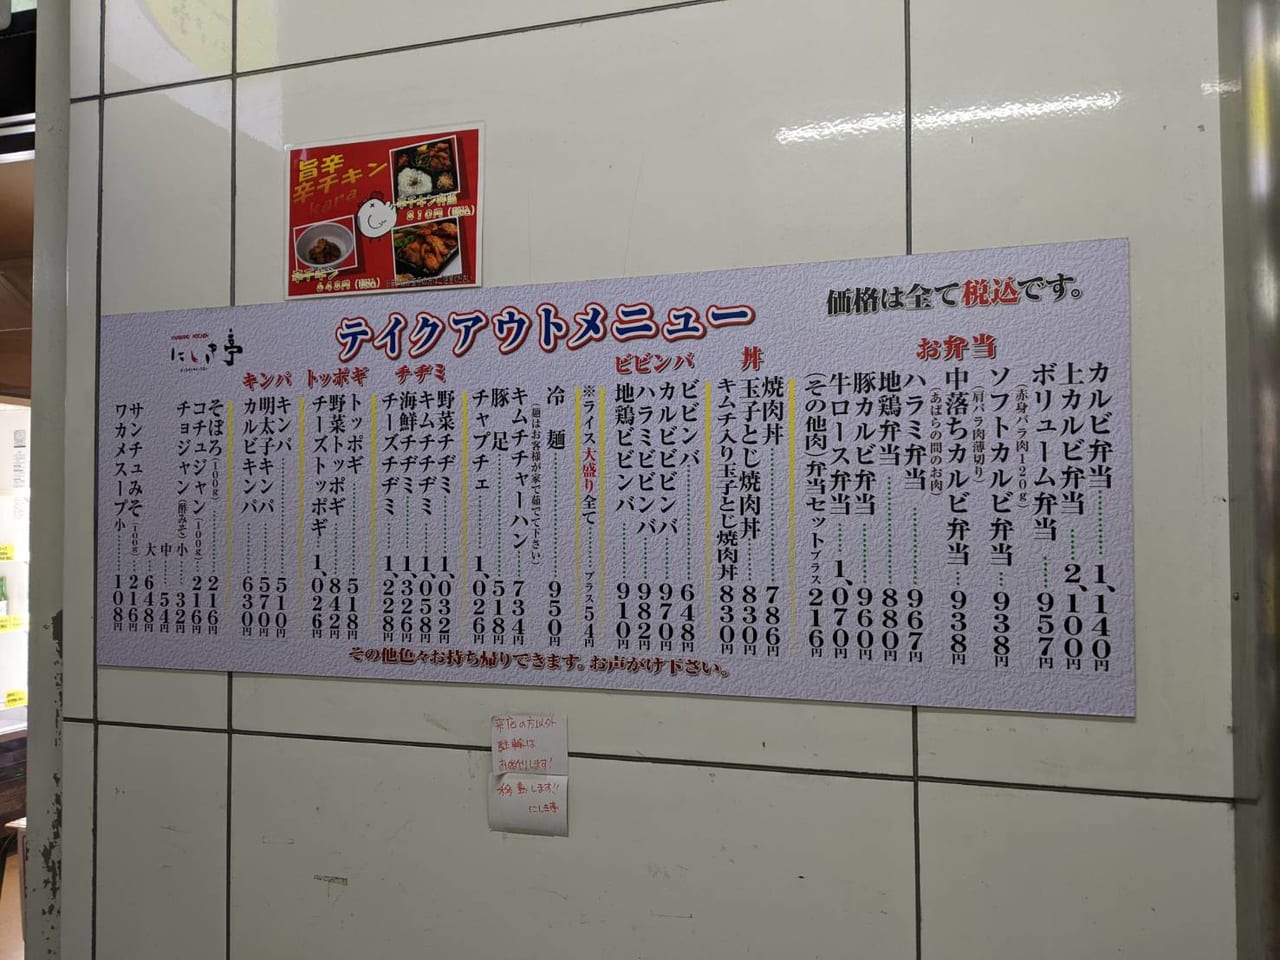 旨辛
辛チキン
kara
辛チキン弁当
810円(税込)
辛チキン
648円(税込)
にしき亭
テイクアウトメニュー
価格は全て税込です。
お弁当
カルビ弁当 1,140円
上カルビ弁当 2,100円
ボリューム弁当 957円
(赤身バラ肉120g)
ソフトカルビ弁当 938円
(肩バラ肉薄切り)
中落ちカルビ弁当 938円
(あばらの間のお肉)
ハラミ弁当 967円
地鶏弁当 880円
豚カルビ弁当 960円
牛ロース弁当 1,070円
(その他肉)弁当セットプラス216円
丼
焼肉丼 786円
玉子とじ焼肉丼 830円
キムチ入り玉子とじ焼肉丼 830円
ビビンバ
ビビンバ 648円
カルビビビンバ 982円
ハラミビビンバ 982円
地鶏ビビンバ 910円
※ライス大盛り全て プラス54円
冷麺 950円
(麺はお客様が家で茹でて下さい)
キムチチャーハン 734円
豚足 518円
チャプチェ 1,026円
チヂミ
野菜チヂミ 1,032円
キムチチヂミ 1,058円
海鮮チヂミ 1,326円
チーズチヂミ 1,228円
トッポギ
トッポギ 518円
野菜トッポギ 842円
チーズトッポギ 1,026円
キンパ
キンパ 510円
明太子キンパ 570円
カルビキンパ 630円
そぼろ(100g) 216円
コチュジャン(100g) 216円
チョジャン(酢みそ)小 32円
中 54円
大 648円
サンチュみそ(100g) 216円
ワカメスープ小 108円
その他色々お持ち帰りできます。お声がけ下さい。
来店の方以外
駐輪は
お断りします!
移動します!!
にしき亭